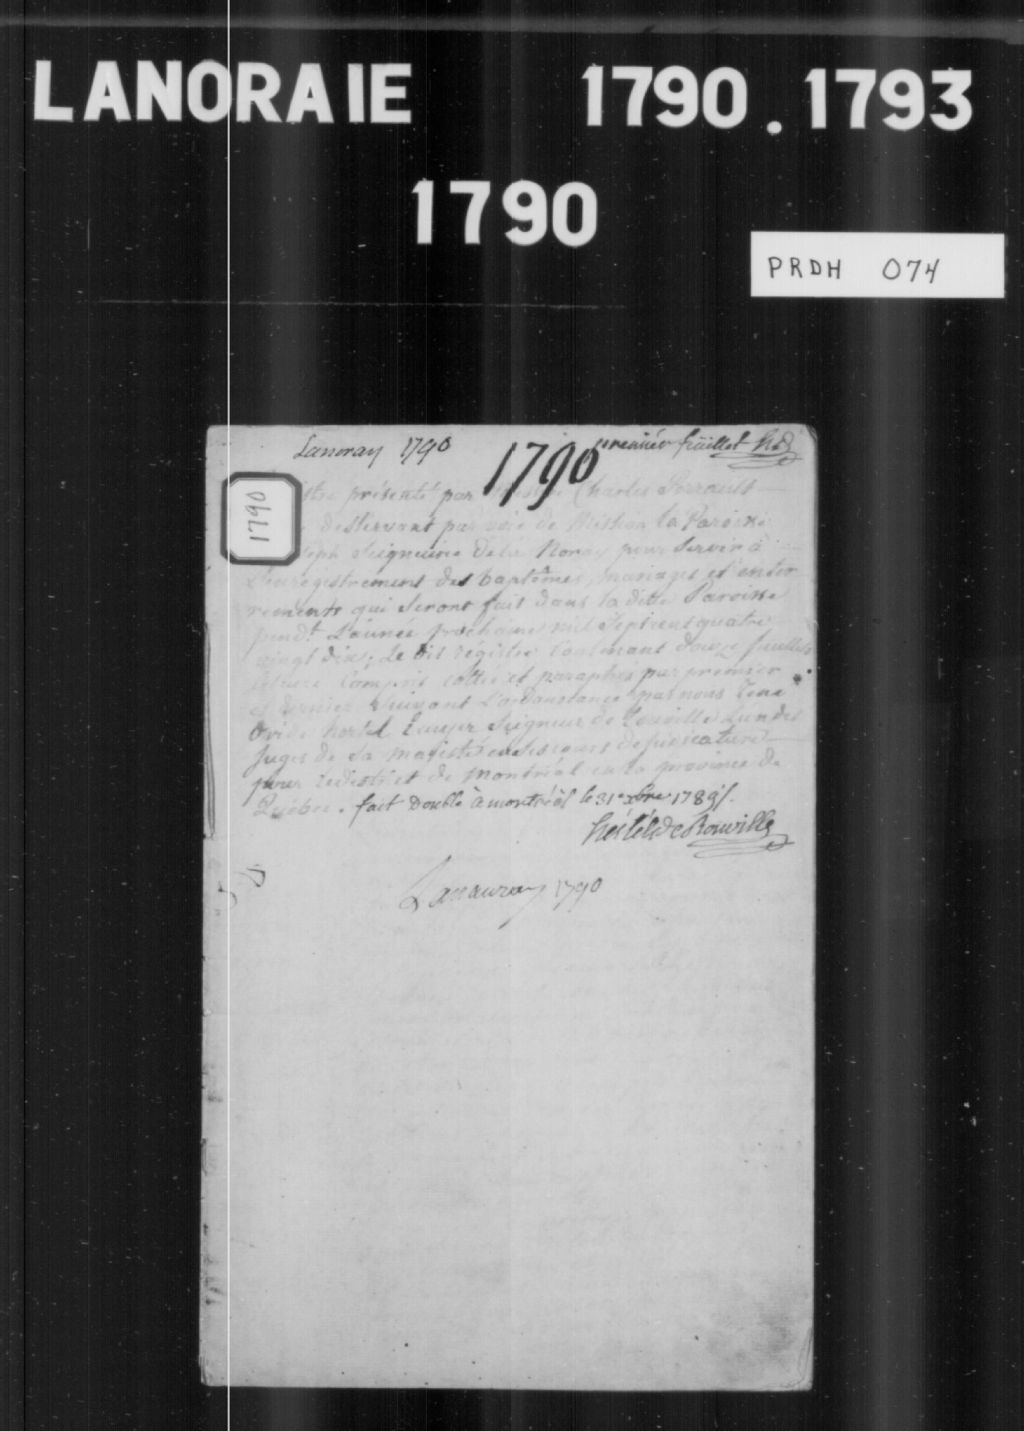 LANORAIE 1790.1793
1790
PRDH 074
Lanoray 1790 1790 premier feüillet hdr
1790
présenté par Charles Perrault
desservant par voie de Mission la Paroisse
Seigneurie de la Noray pour Servir à
L'enrégistrement des baptêmes, mariages et enter
rements qui Seront fait dans la ditte Paroisse
pend.t L'année prochaine mil Sept cent quatre
vingt dix, Le dit régistre Contenant douze feuillets
Compris cotté et paraphés par premier
et dernier Suivant L'ordonnance par nous René
Ovide hertel Ecuyer Seigneur de Rouville L'un des
Juges de Sa Majesté cours de judicature
pour le district de Montréal en la province de
Québec. fait Double à montréal le 31 xbre 1789
hertel de Rouville
Lanauray 1790